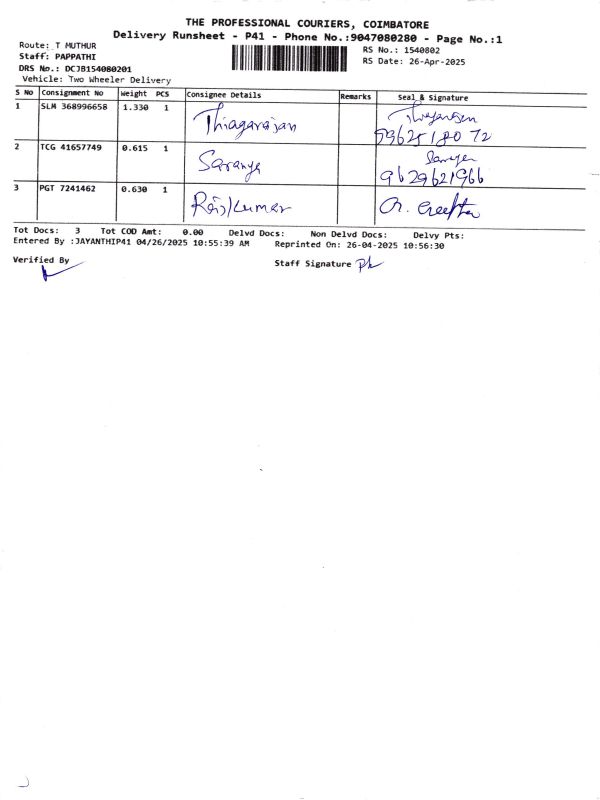 THE PROFESSIONAL COURIERS, COIMBATORE
Delivery Runsheet - P41 - Phone No.:9047080280 - Page No.:1
Route: T MUTHUR
RS No.: 1540802
Staff: PAPPATHI
RS Date: 26-Apr-2025
DRS No.: DCJB154080201
Vehicle: Two Wheeler Delivery
S No Consignment No Weight PCS Consignee Details Remarks Seal & Signature
1 SLM 368996658 1.330 1 Thiagarajan
2 TCG 41657749 0.615 1 Saranya
9629621966
3 PGT 7241462 0.630 1 Rajkumar
Tot Docs: 3 Tot COD Amt: 0.00 Delvd Docs: Non Delvd Docs: Delvy Pts:
Entered By :JAYANTHIP41 04/26/2025 10:55:39 AM Reprinted On: 26-04-2025 10:56:30
Verified By
Staff Signature